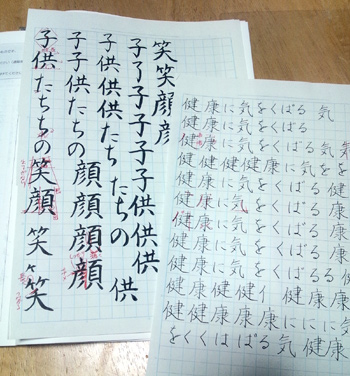 笑笑顔顔
子了子子子子子供供
子供供供たち
たちの供
子子供たちの顔顔顔顔
子供たちちの笑顔笑笑
健康に気をくばる 気
健康に気をくばる
健康に気をくばる 気
健健健健康に気をを
健康に気をくばる 健
健康に気をくばる
健康に気をくばる 康
健康に気をくばるる 健
健康健健 健康康
をくくはばる気健康